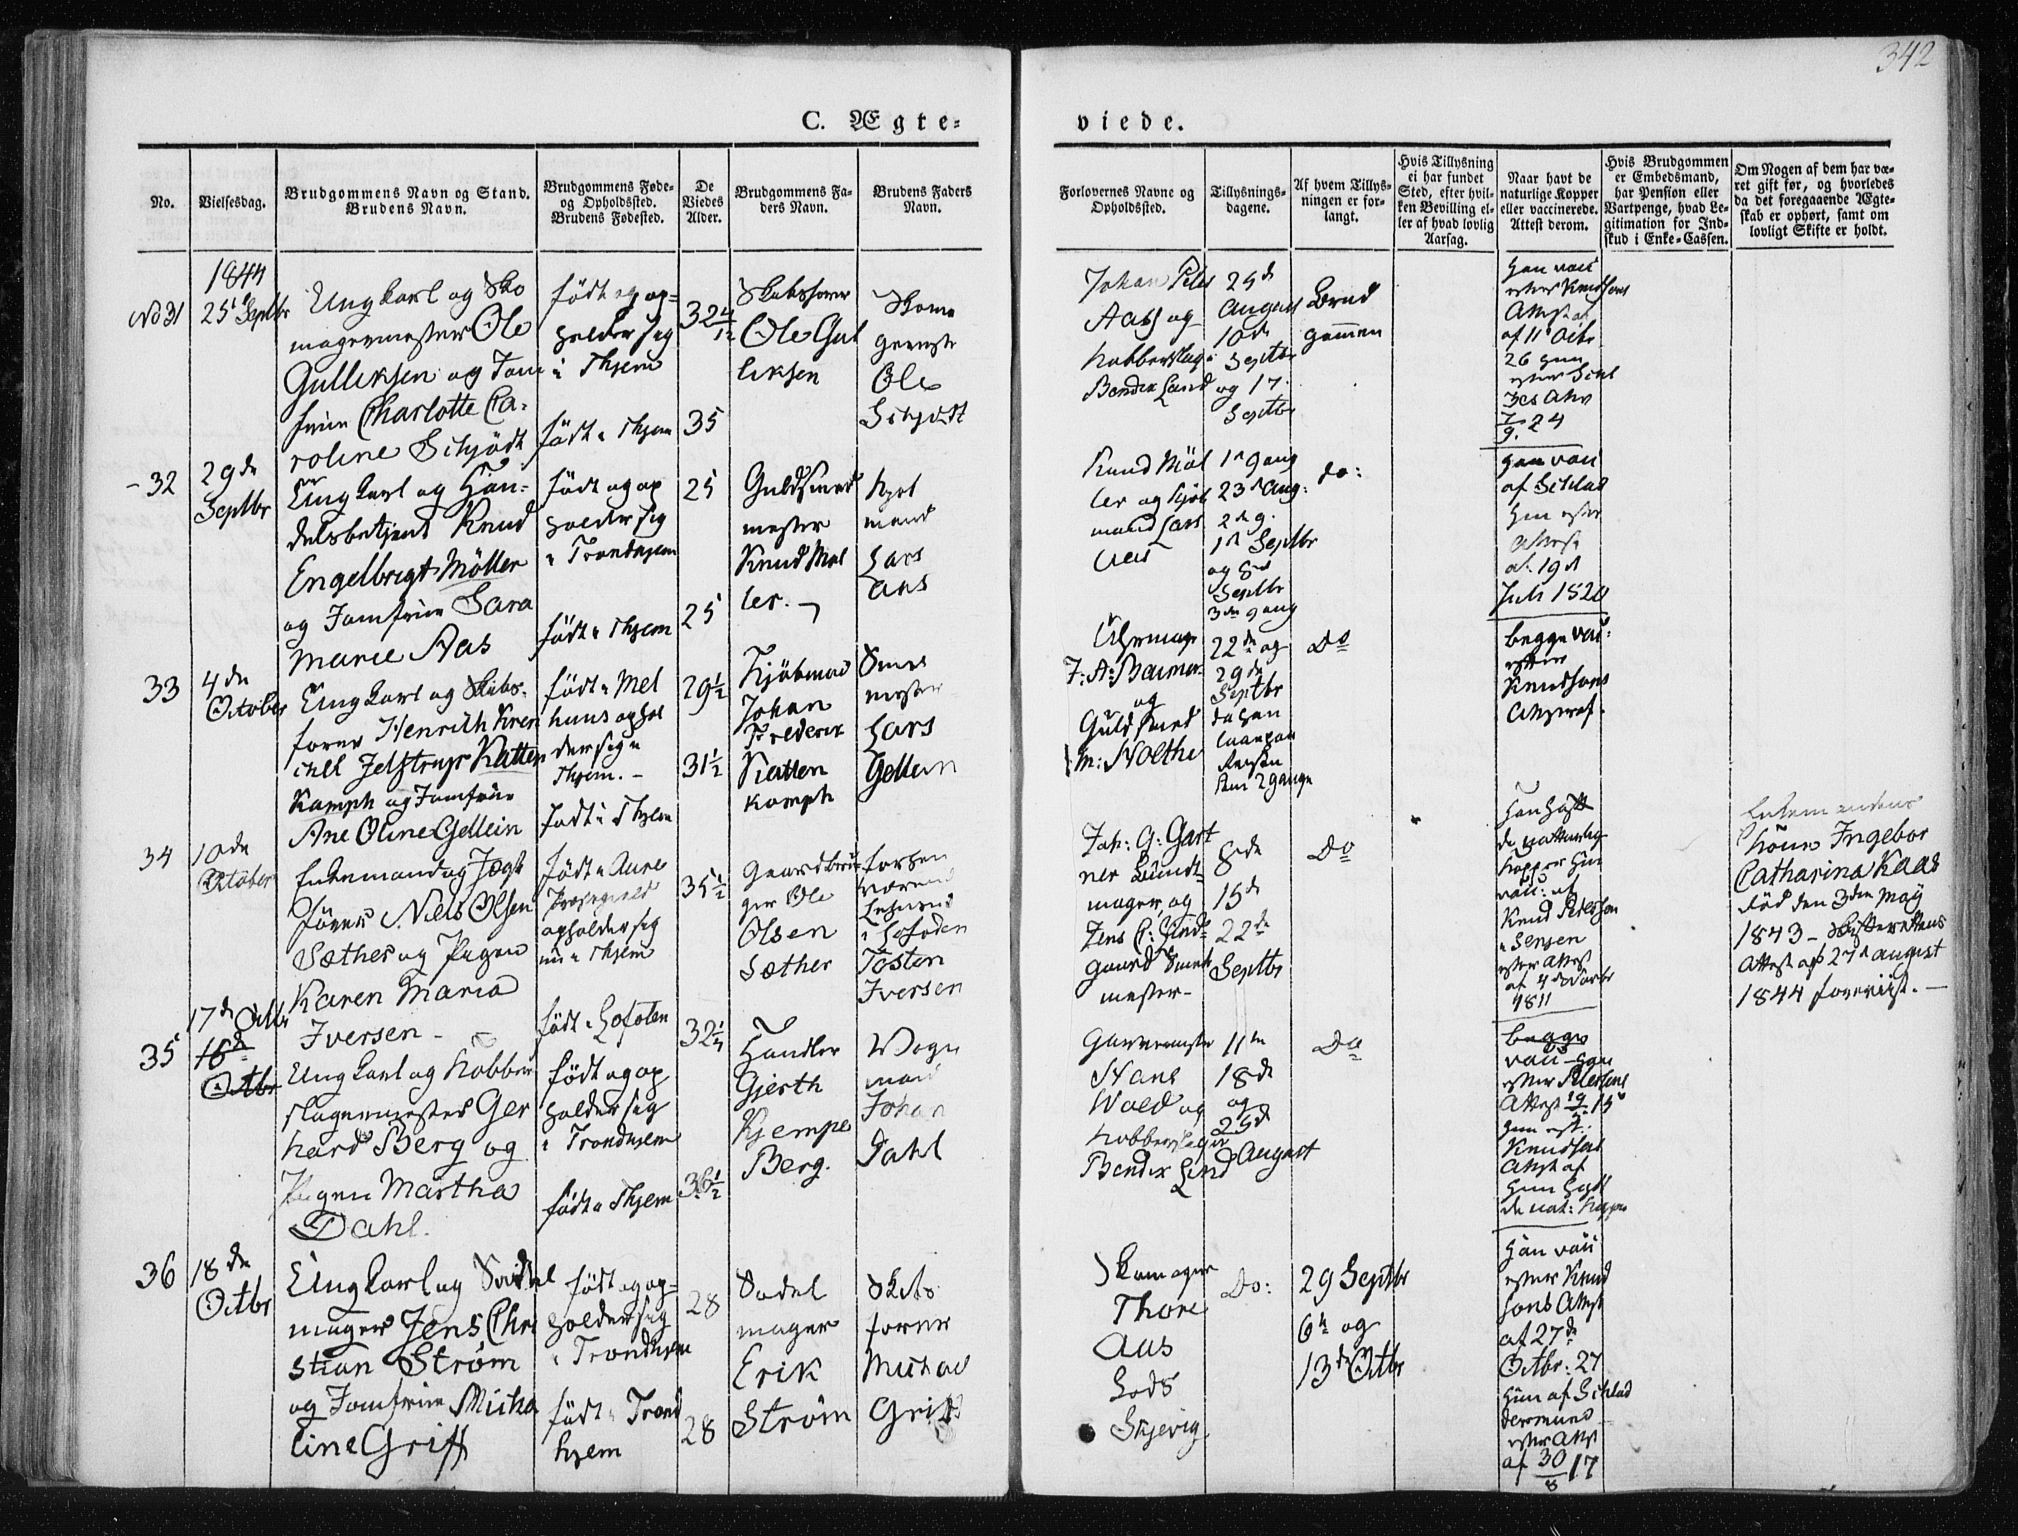 342
C. Ægte=
viede.
No.
Vielsesdag.
Brudgommens Navn og Stand.
Brudens Navn.
Brudgommens Føde-
og Opholdssted.
Brudens Fødested.
De
Viedes
Alder.
Brudgommens Fa-
ders Navn.
Brudens Faders
Navn.
Forlovernes Navne og
Opholdssted.
Tillysnings-
dagene.
Af hvem Tillys-
ningen er for-
langt.
Hvis Tillysning
ei har fundet
Sted, efter hvil-
ken Bevilling el-
ler af hvad lovlig
Aarsag.
Naar havt de
naturlige Kopper
eller vaccinerede.
Attest derom.
Hvis Brudgommen
er Embedsmand,
har Pension eller
Vartpenge, hvad Le-
gitimation for Ind-
skud i Enke-Cassen.
Om Nogen af dem har væ-
ret gift før, og hvorledes
da det foregaaende Ægte-
skab er ophørt, samt om
lovligt Skifte er holdt.
1844
No 31
25de Septbr
Ungkarl og Sko
magermester Ole
Gulliksen og Jom
frue Charlotte Ca-
roline Schjödt
födt og op-
holder sig
i Thjem
födt i Thjem
32 4/12
35
Ole Gul
liksen
Ole
Schjödt
Johan
Aas og
Kobberslag
Bendix Lund
25de
August
10de
Septbr
og 17
Septbr
Brud
gommen
Han vacc
efter Knudsons
Attest
af 11 Octbr
26 Hun
efter
7/9. 24
- 32
29de
Septbr
Ungkarl og Han-
delsbetjent Knud
Engelbrigt Möller
og Jomfrue Sara
Marie Aas
födt og op
holder sig
i Trondhjem
födt i Thjem
25
25
Guldsmed
mester
Knud Möl
ler.
mand
Lars
Aas
Knud Möl
ler og
mand Lars
Aas
1n gang
23d Aug:
2de g.
1n Septbr
og 8de
Septbr
3die gang
do:
Han vacc
Hun efter
Attest
af 19d
Juli 1820
33
4de
October
Ungkarl og Skibs-
förer Henrich
Jelstrup Katten
Kamph og Jomfrue
Ane Oline Gellein
födt i Mel
huus ophol
der sig i
Thjem. -
födt i Thjem
29 1/2
31 1/2
Kjöbmand
Johan
Frederik
Katten
kamph
mester
Lars
Gellein
og
Guldsmed
M: Nolthe
22de og
29de
Septbr
da han
2 gange
Do
begge vac:
efter
Knudsons
Attest af.
34
10de
October
Enkemand og Jægt
förer Niels Olsen
Sæther og Pigen
Karen Maria
Iversen -
födt i Aure
Præstegield
opholder sig
nu i Thjem
födt i Lofoten
35 1/2
32 1/4
Gaardbru
ger Ole
Olsen
Sæther
forhen
værende
i Lofoden
Tosten
Iversen
mager, og
Jens C: Lind
Gaard
mester-
8de
15de
22de
Septbr
Do
Han hafte
de naturlig
kopper Hun
vacc: af
Knud
efter Attest
1811
Enkemandens
Kone Ingebor
Catharina Kaas
död den 3den May
1843 - Skifterettens
Attest af 27de August
1844 foreviist. -
35
17de Octbr
16de
Octbr
Ungkarl og Kobber
slagermester Ger
hard Berg og
Pigen Martha
Dahl.
födt og op
holder sig
i Trondhjem
födt i Thjem
36 1/2
Handler
Gjerth
Kjempe
Berg.
Vogn
mand
Johan
Dahl
Hans
Wold og
Kobberslager
Bendix Lind
11te
18de
og
25de
August
Do
begge
vacc - Han
efter Petersens
Attest
Hun eft:
Knudsons
Attest af
Hun hafte
de nat: Kopper
36
18de
Octbr
Ungkarl og Sadel
mager Jens Chri
stian Ström
og Jomfrue Micha
line Griff
födt og op-
holder sig
i Trondhjem
födt i Trond
hjem
28
28
Sadel
mager
Erik
Ström
Skibs
förer
Michael
Griff
Skomager
Thore
Aas
Lods
Skjevig
Do:
29 Septbr
6te og
13de Octbr
Han vacc
efter Knud
sons Attest
af 27de
Octbr: 27
Hun af
efter Attst
af 30/8 17